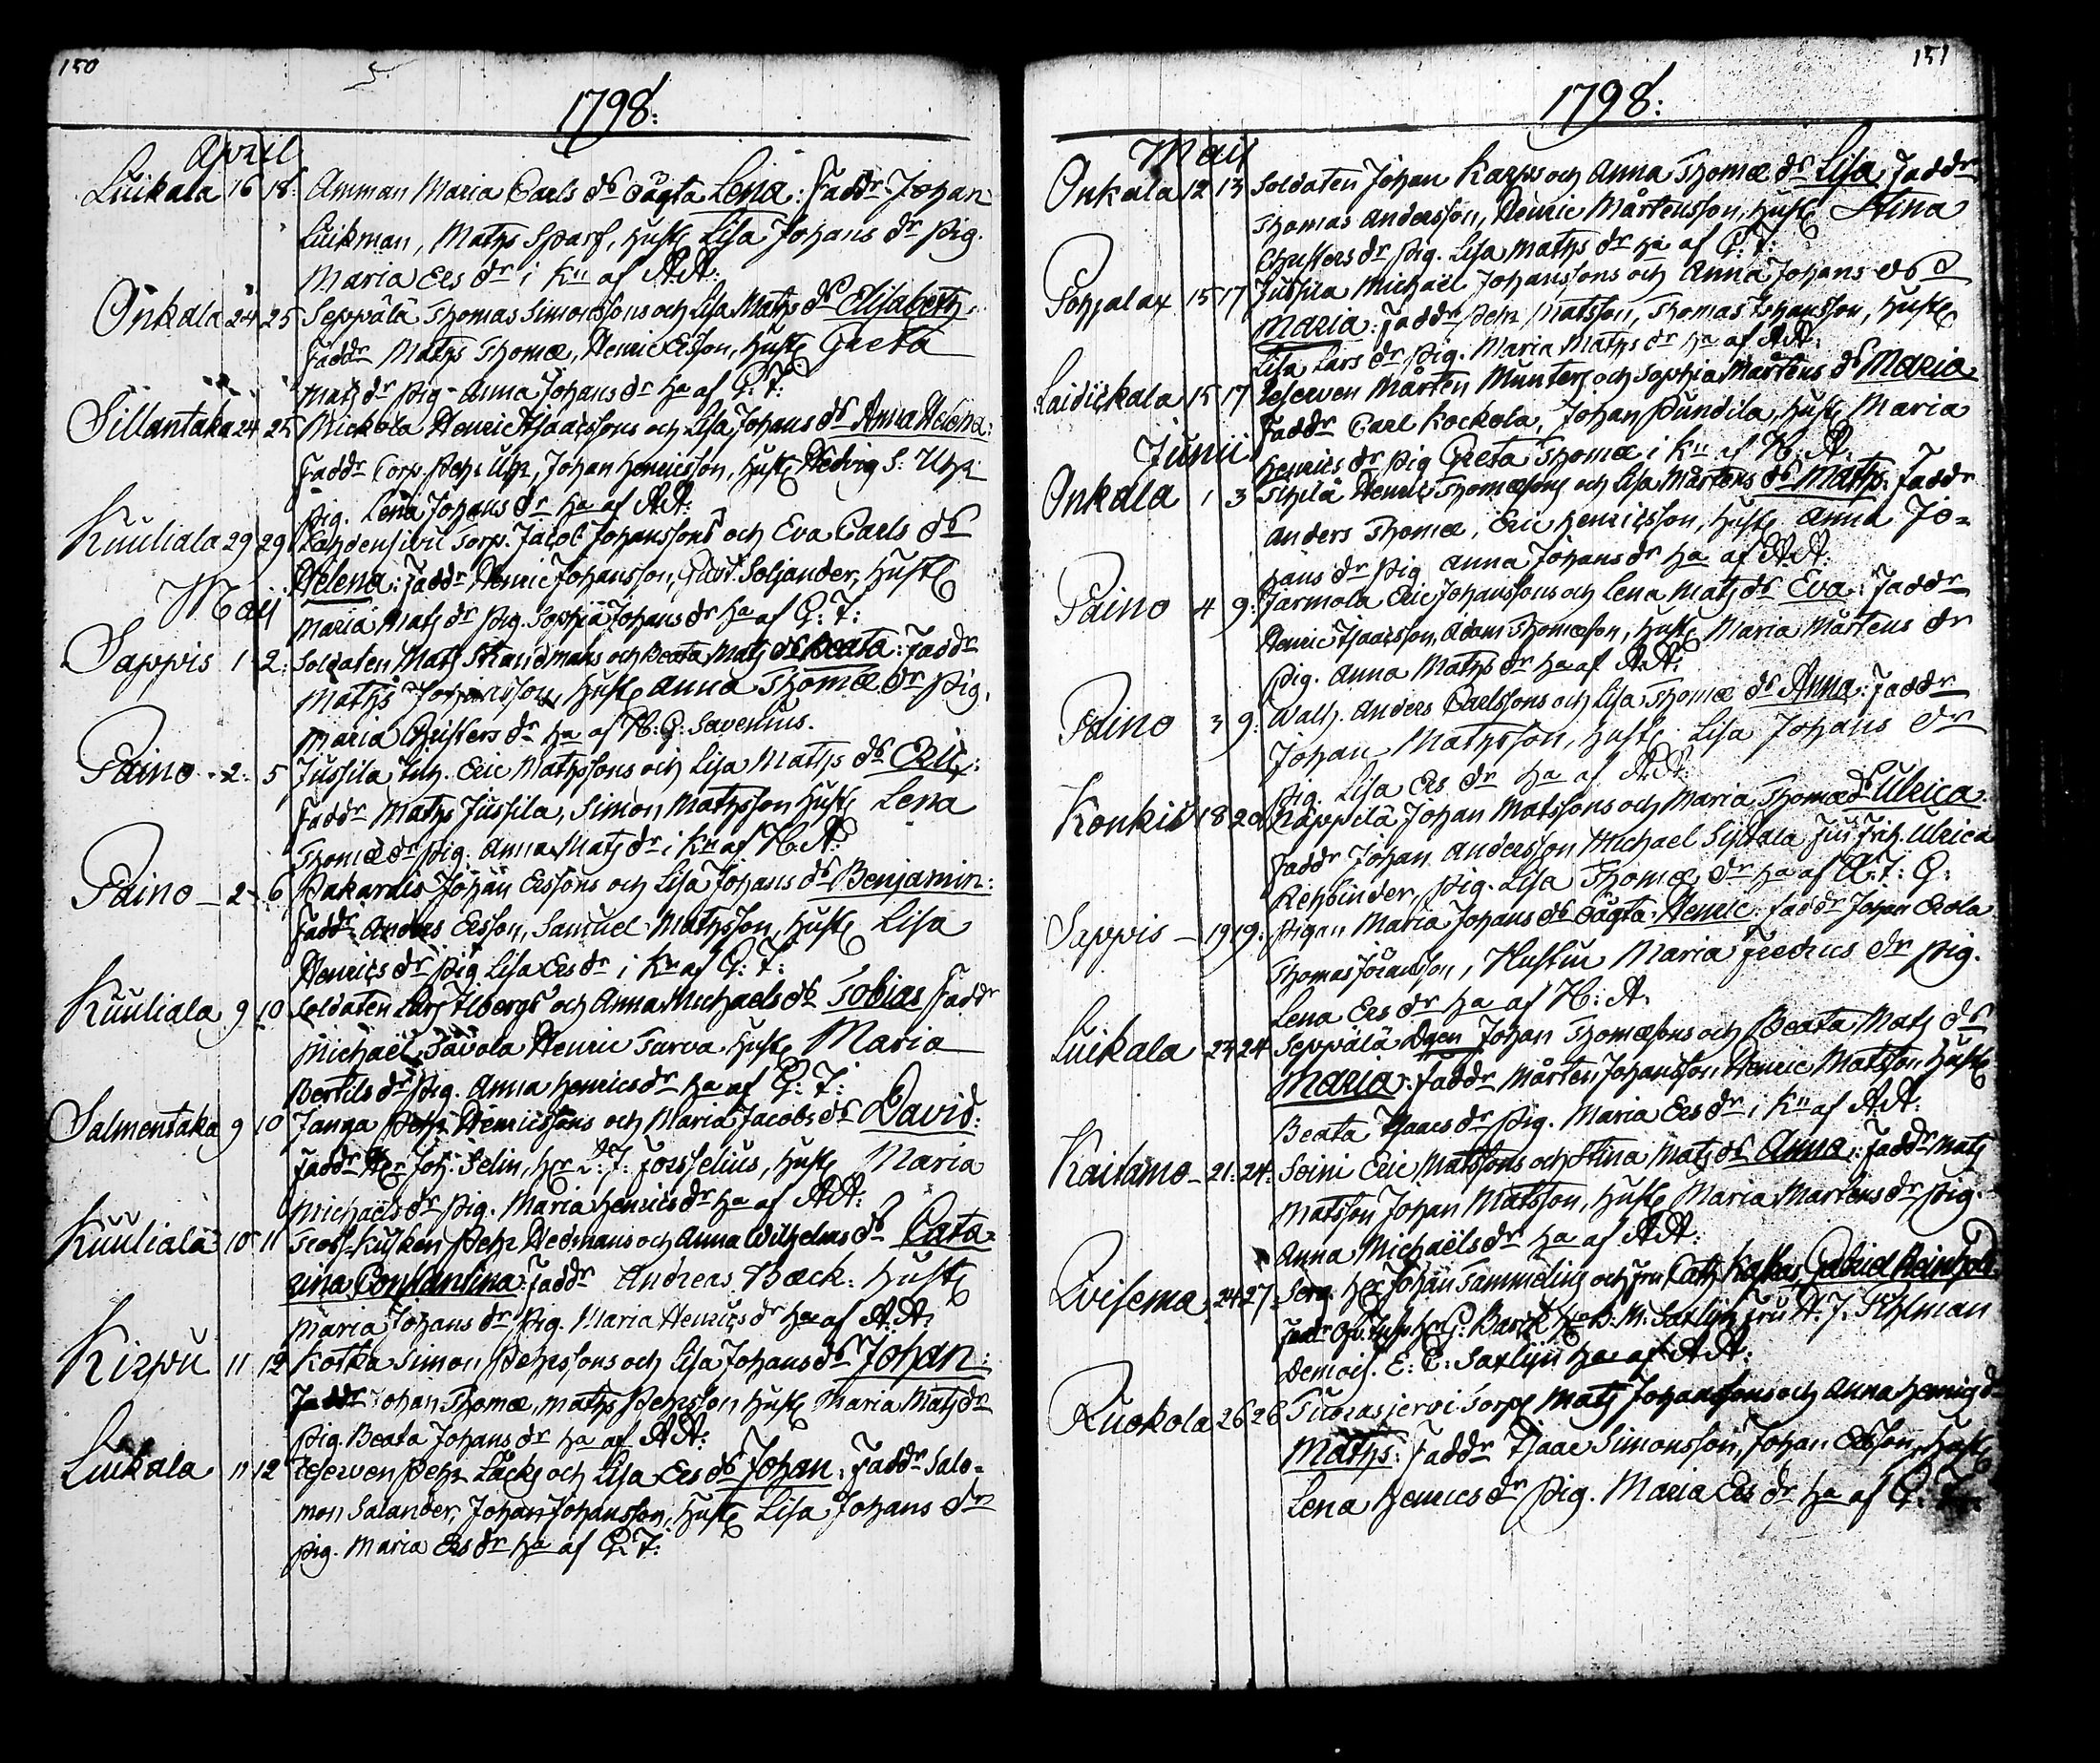 150
1798:
April
Luikala 16 18. Amman Maria Carls ds oägta Lena: Faddr Johan
Luikman, Mathes Sparf, hust. Lisa Johans dr pig.
Maria Ers dr i Kn af A.A:
Onkala 24 25 Seppälä Thomas Simonssons och Lisa Maths ds Elisabeth.
Faddr Maths Thomæ, Henric Ersson, Hust. Greta
Mats dr pig. Anna Johans dr ha af G: T:
Sillantaka 24 25 Mickola Henric Isaacssons och Lisa Johans ds Anna Helena:
Faddr Corp. Pehr Uhr, Johan Henricsson, Hust. Hedvig S: Uhr
pig. Lena Johans dr ha af A.A:
Kuuliala 29 29 Torp. Jacob Johanssons och Eva Carls ds
Helena: Faddr Henric Johansson, Gust. Soljander, Hust.
Maria Mats dr pig. Sophia Johans dr ha af G: T:
Maij
Sappis 1 2: Soldaten Mats Strandmans och Beata Mats ds Beata: Faddr
Maths Johansson, Hust. Anna Thomæ dr pig.
Maria Christers dr ha af H: G: Savenius.
Paino 2. 5 Jussila Inh. Eric Mathssons och Lisa Maths ds Eric:
Faddr Maths Jussila, Simon Mathsson Hust. Lena
Thomæ dr pig. Anna Mats dr i Kn af H. A:
Paino 2 6 Pakardis Johan Erssons och Lisa Johans ds Benjamin:
Faddr Anders Ersson, Samuel Mathsson, Hust. Lisa
Henrics dr pig Lisa Ers dr i Kn af G: T:
Kuuliala 9 10 Soldaten Lars Ilbergs och Anna Michaels ds Tobias Faddr
Michaël Tavola Henric Turva Hust. Maria
Bertils dr pig. Anna Henrics dr ha af G: T:
Salmentaka 9 10 Janga Pehr Henricssons och Maria Jacobs ds David:
Faddr Hr Joh. Selin, Hr D: J: Forsselius, Hust. Maria
Michaels dr pig. Maria Henrics dr ha af A.A:
Kuuliala 10 11 Pehr Hedmans och Anna Wilhelms ds Cata-
rina Constantina: Faddr Andreas Bæck: Hust.
Maria Johans dr pig. Maria Henrics dr ha af A.A:
Kirpu 11 12 Kotka Simon Pehrssons och Lisa Johans ds Johan:
Faddr Johan Thomæ, Maths Pehrsson Hust. Maria Mats dr
pig. Beata Johans dr ha af A.A:
Luikala 11 12 Reserven Pehr Läcks och Lisa Ers ds Johan: Faddr Salo-
mon Salander, Johan Johansson, Hust. Lisa Johans dr
pig. Maria Ers dr ha af G. T:
151
1798:
Maij
Onkala 12 13 Soldaten Johan Karps och Anna Thomæ ds Lisa Faddr
Thomas Andersson, Henric Mårtensson, Hust. Stina
Christers dr pig. Lisa Maths dr ha af G: T:
Pohjalax 15 17 Jussila Michaël Johanssons och Anna Johans ds
Maria: Faddr Pehr Matsson, Thomas Johansson, Hust.
Lisa Lars dr pig. Maria Maths dr ha af A.A:
Laidickala 15 17 Reserven Mårten Munters och Sophia Mårtens ds Maria
Faddr Carl Kockola, Johan Pundila, Hust. Maria
Henrics dr pig Greta Thomæ i Kn af H. A.
Junii
Onkala 1 3 Sipilä Henric Thomæsons och Lisa Mårtens ds Maths: Faddr
Anders Thomæ, Eric Henricsson, Hust. Anna Jo-
hans dr pig. Anna Johans dr ha af A.A:
Paino 4 9: Jarmola Eric Johanssons och Lena Mats ds Eva: Faddr
Henric Isaacsson, Adam Thomæson, Hust. Maria Mårtens dr
pig. Anna Maths dr ha af A.A:
Paino 3 9: Anders Carlssons och Lisa Thomæ ds Anna: Faddr
Johan Mathsson, Hust. Lisa Johans dr
pig. Lisa Ers dr ha af A.A:
Konkio 18 20 Käppilä Johan Matssons och Maria Thomæ ds Ulrica.
Faddr Johan Andersson Michael Ulrica
Rehbinder, pig. Lisa Thomæ dr ha af A. T: G:
Sappis 19 19: Pigan Maria Johans ds oägta Henric: Faddr Johan Erola
Thomas Göransson, Hustru Maria Fredrics dr pig.
Lena Ers dr ha af H: A:
Luikala 23 24 Seppälä Dgen Johan Thomæsons och Beata Mats ds
Maria: Faddr Mårten Johansson, Henric Matsson, Hust.
Beata Isaacs dr pig. Maria Ers dr i Kn af A.A:
Kaitamo 21: 24: Soini Eric Matssons och Stina Mats ds Anna: Faddr Mats
Matsson Johan Matsson, Hust. Maria Mårtens dr pig.
Anna Michaëls dr ha af A.A:
24 27 Serg. Hr Johan Tammelins och Fru Cath. Gabriel Reinhold
Faddr Hr G: Hr B. M. Saxlijn, Fru A. J.
Demois. E: C: Saxlijn ha af A.A:
Ruokola 26 26 Torp. Mats Johanssons och Anna Henrics ds
Maths: Faddr Isaac Simonsson, Johan Ersson, Hust.
Lena Henrics dr pig. Maria Ers dr ha af G.